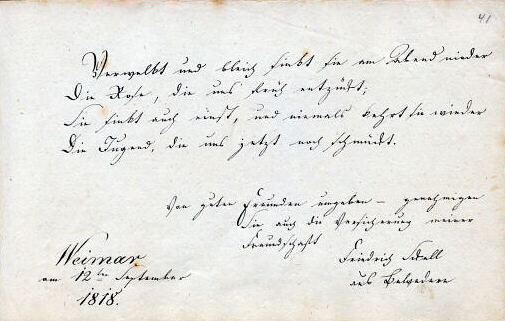 41
Verwelkt und bleich sinkt sie am Abend nieder
Die Rose, die uns früh entzückt;
Sie sinkt auch einst, und niemals kehrt sie wieder
Die Jugend, die uns jetzt noch schmückt.
Von guten Freunden umgeben – genehmigen
Sie auch die Versicherung meiner
Freundschaft
Friedrich Sckell
aus Belvedere
Weimar
am 12ten September
1818.